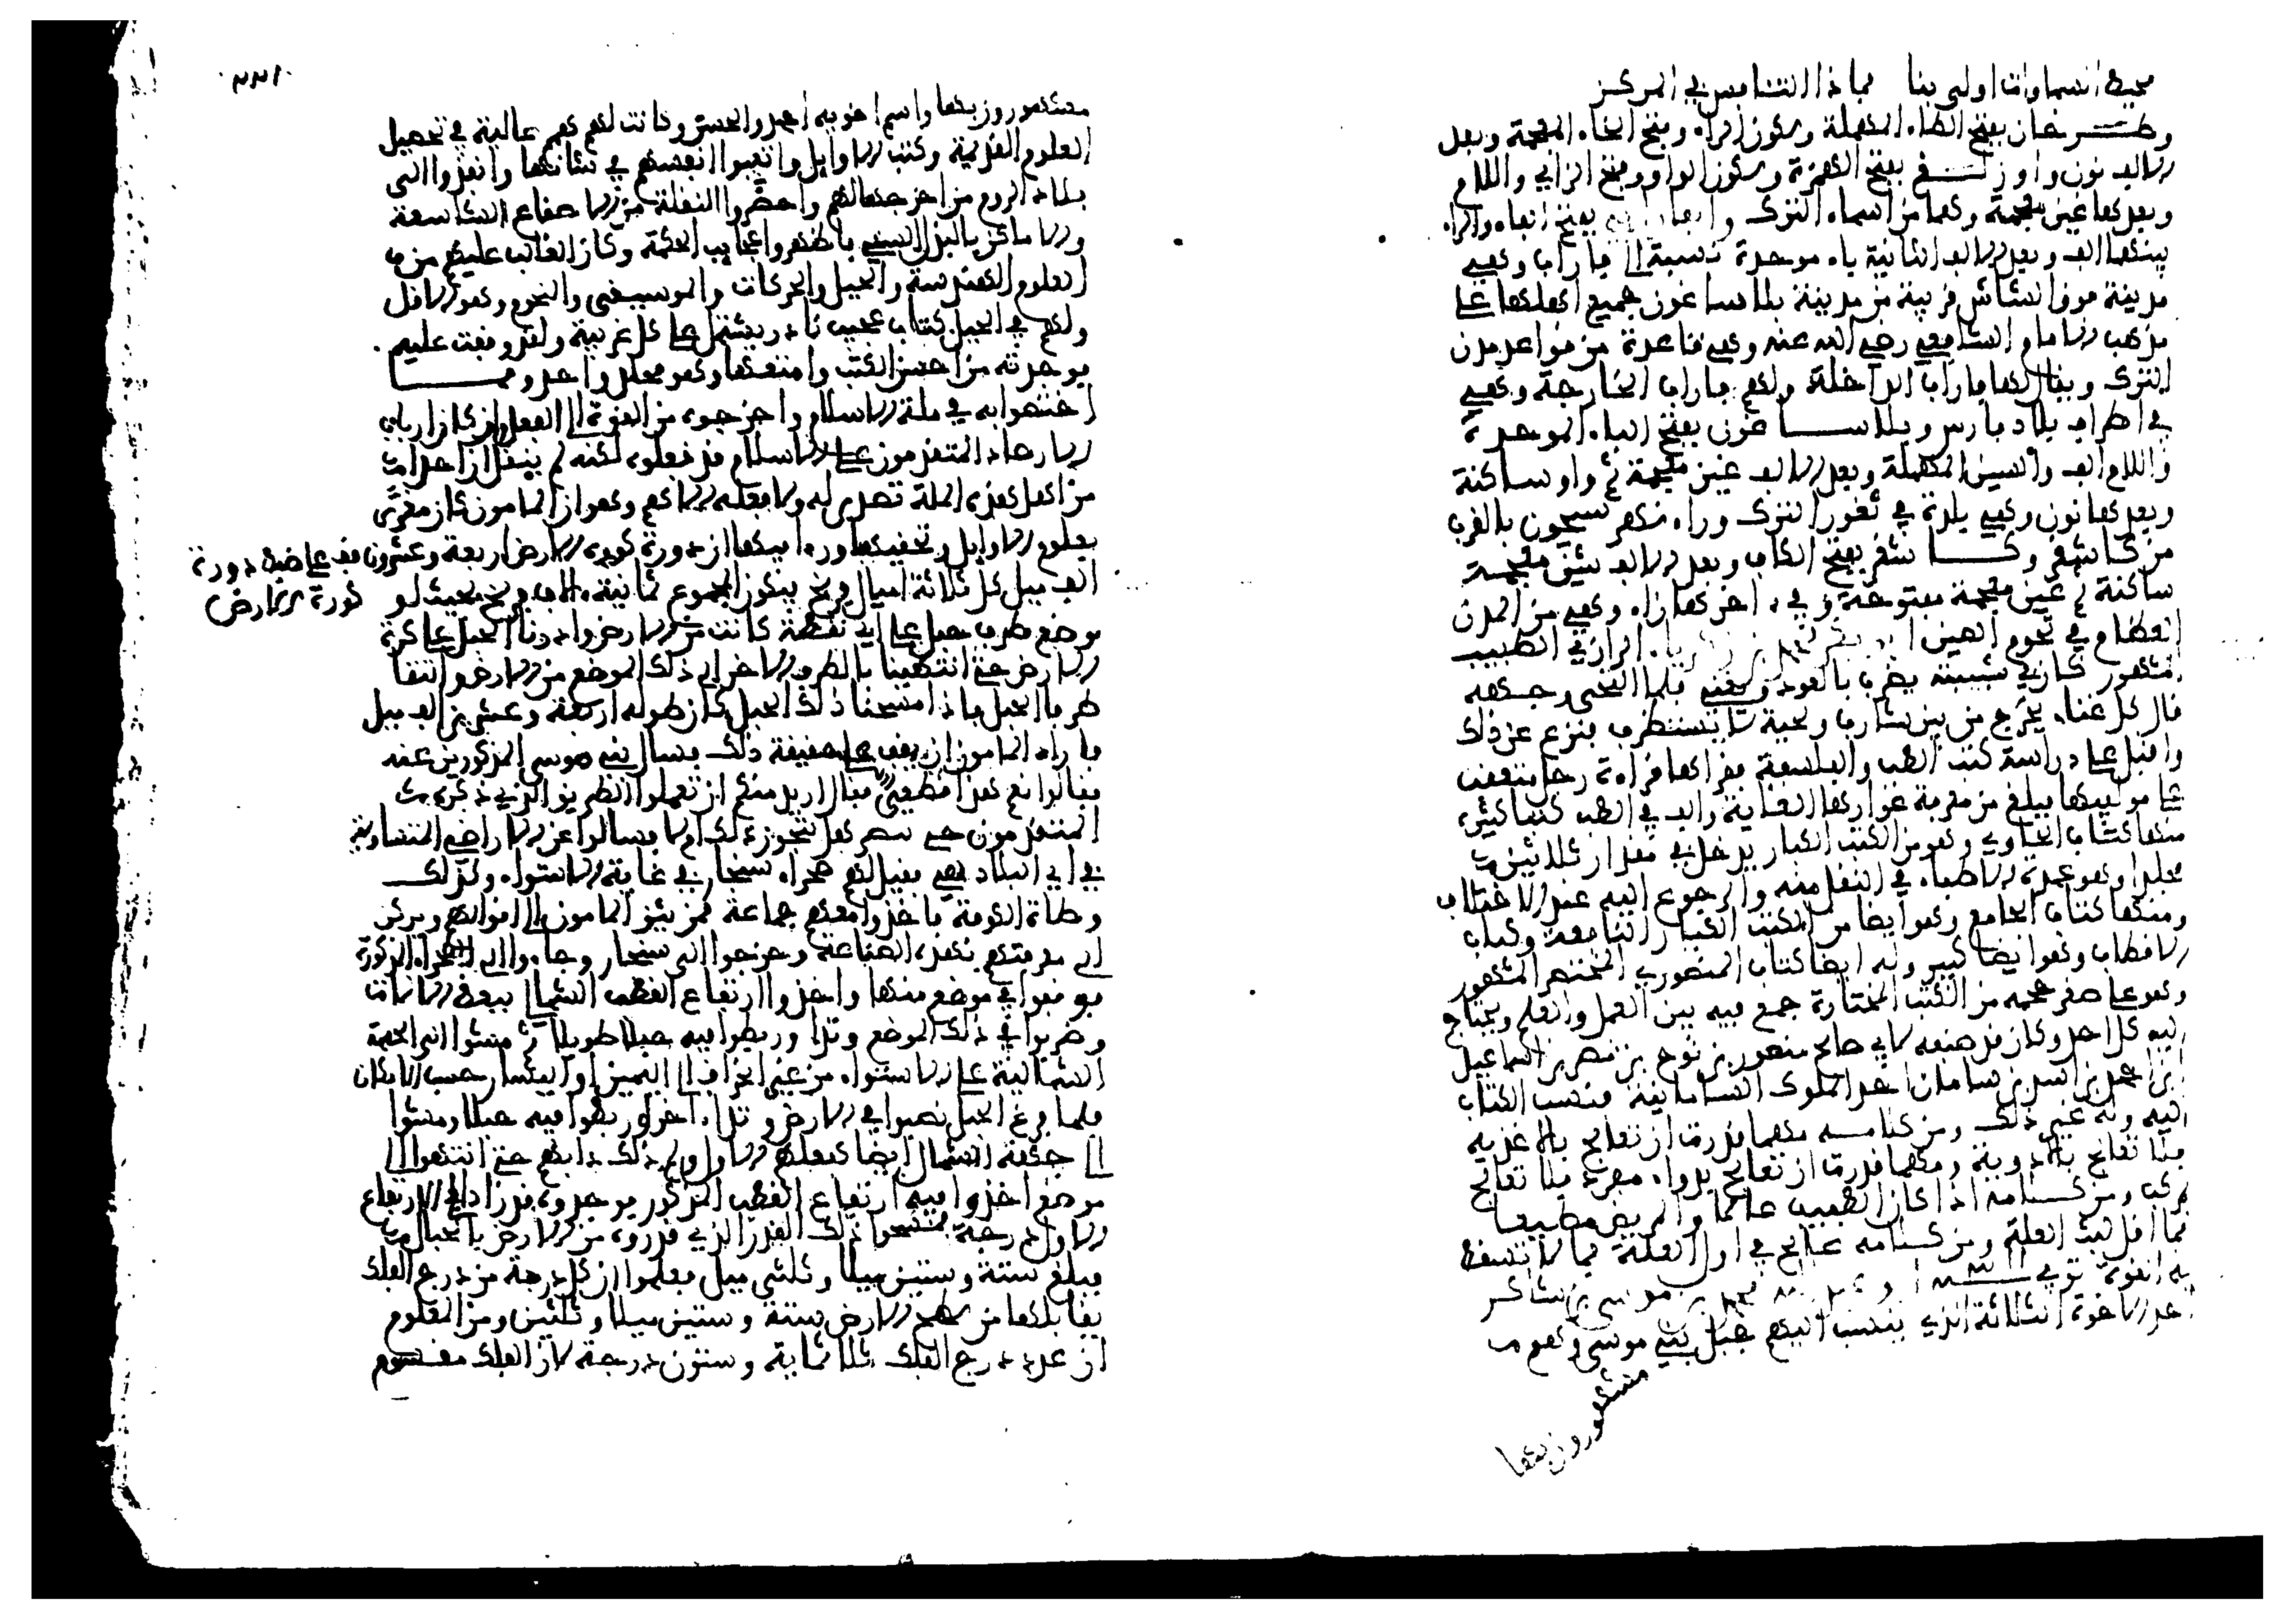 محيط السماوات اولى بنا فماذا التنافس في المركز
وطرخان بفتح الطاء المهملة وسكون الراء وفتح الخاء المعجمة وبعد
الالف نون واوزلغ بفتح الهمزة وسكون الواو وفتح الزاي واللام
وبعدها غين معجمة وهما من اسماء الترك والفارابي بفتح الفاء والراء
بينهما الف وبعد الالف الثانية باء موحدة نسبة الى فاراب وهي
مدينة فوق الشاش قريبة من مدينة بلاساغون جميع اهلها على
مذهب الامام الشافعي رضي الله عنه وهي قاعدة من قواعد مدن
الترك ويقال لها فاراب الداخلة ولهم فاراب الخارجة وهي
في اطراف بلاد فارس وبلاساغون بفتح الباء الموحدة
واللام الف والسين المهملة وبعد الالف غين معجمة ثم واو ساكنة
وبعدها نون وهي بلدة في ثغور الترك وراء نهر سيحون بالقرب
من كاشغر وكاشغر بفتح الكاف وبعد الالف شين معجمة
ساكنة ثم غين معجمة مفتوحة وفي ءاخرها راء وهي من المدن
العظام في تخوم الصين ابو بكر محمد بن زكرياء الرازي الطبيب
المشهور كان في شبيبته يضرب بالعود ويغني فلما التحى وجهه
قال كل غناء يخرج من بين شارب ولحية لا يستظرف فنزع عن ذلك
واقبل على دراسة كتب الطب والفلسفة فقراها قراءة رجل متعقب
على مولفيها فبلغ من معرفة غوارها الغاية والف في الطب كتبا كثيرة
منها كتاب الحاوي وهو من الكتب الكبار يدخل في مقدار ثلاثين
مجلدا وهو عمدة الاطباء في النقل منه والرجوع اليه عند الاختلاف
ومنها كتاب الجامع وهو ايضا من الكتب الكبار النافعة وكتاب
الاقطاب وهو ايضا كبير وله ايضا كتاب المنصوري المختصر المشهور
وهو على صغر حجمه من الكتب المختارة جمع فيه بين العمل والعلم ويحتاج
اليه كل احد وكان قد صنفه لابي صالح منصور بن نوح بن نصر بن اسماعيل
ابن احمد بن اسد بن سامان احد الملوك السامانية فنسب الكتاب
اليه وله غير ذلك ومن كلامه مهما قدرت ان تعالج بالاغذية
فلا تعالج بالادوية ومهما قدرت ان تعالج بدواء مفرد فلا تعالج
بمركب ومن كلامه اذا كان الطبيب عالما والمريض مطيعا
فما اقل لبث العلة ومن كلامه عالج في اول العلة بما لا تسقط
به القوة توفي موسى بن شاكر
احد الاخوة الثلاثة الذين ينسب اليهم حيل بني موسى وهم
مشهورون بها
٢٢١
مشهورون بها واسم اخويه احمد والحسن وكانت لهم همم عالية في تحصيل
العلوم القديمة وكتب الاوايل واتعبوا انفسهم في شانها وانفذوا الى
بلاد الروم من اخرجها لهم واحضروا النقلة من الاصقاع الشاسعة
والاماكن بالبذل السني فاظهروا عجايب الحكمة وكان الغالب عليهم من
العلوم الهندسة والحيل والحركات والموسيقى والنجوم وهو الاقل
ولهم في الحيل كتاب عجيب نادر يشتمل على كل غريبة ولقد وقفت عليه
فوجدته من احسن الكتب وامتعها وهو مجلد واحد ومما
اختصوا به في ملة الاسلام واخرجوه من القوة الى الفعل وان كان ارباب
الارصاد المتقدمون على الاسلام قد فعلوه لكنه لم ينقل ان احدا
من اهل هذه الملة تصدى له ولا فعله الا هم وهو ان المامون كان مغرى
بعلوم الاوايل وتحقيقها ورءا فيها ان دورة كرة الارض اربعة وعشرون
قف على ضبط دورة
كورة الارض
الف ميل كل ثلاثة اميال فرسخ فيكون المجموع ثمانية ءالاف فرسخ بحيث لو
وضع طرف حبل على اي نقطة كانت من الارض وادرنا الحبل على كرة
الارض حتى انتهينا بالطرف الاخر الى ذلك الموضع من الارض والتقا
طرفا الحبل فاذا مسحنا ذلك الحبل كان طوله اربعة وعشرين الف ميل
فاراد المامون ان يقف على حقيقة ذلك فسال بني موسى المذكورين عنه
فقالوا نعم هذا قطعي فقال اريد منكم ان تعملوا الطريق الذي ذكره
المتقدمون حتى نبصر هل يتحرر ذلك ام لا فسالوا عن الاراضي المتساوية
في اي البلاد هي فقيل لهم صحراء سنجار في غاية الاستواء وكذلك
وطاة الكوفة فاخذوا معهم جماعة ممن يثق المامون الى اقوالهم ويركن
الى معرفتهم بهذه الصناعة وخرجوا الى سنجار وجاءوا الى الصحراء المذكورة
فوقفوا في موضع منها واخذوا ارتفاع القطب الشمالي ببعض الالات
وضربوا في ذلك الموضع وتدا وربطوا فيه حبلا طويلا ثم مشوا الى الجهة
الشمالية على الاستواء من غير انحراف الى اليمين او اليسار حسب الامكان
فلما فرغ الحبل نصبوا في الارض وتدا ءاخر وربطوا فيه حبلا ومشوا
الى جهة الشمال ايضا كفعلهم الاول ولم يزل ذلك دابهم حتى انتهوا الى
موضع اخذوا فيه ارتفاع القطب المذكور فوجدوه قد زاد على الارتفاع
الاول درجة فمسحوا ذلك القدر الذي قدروه من الارض بالحبال
فبلغ ستة وستين ميلا وثلثي ميل فعلموا ان كل درجة من درج الفلك
يقابلها من سطح الارض ستة وستين ميلا وثلثين ومن المعلوم
ان عدد درج الفلك ثلاثماية وستون درجة لان الفلك مقسوم